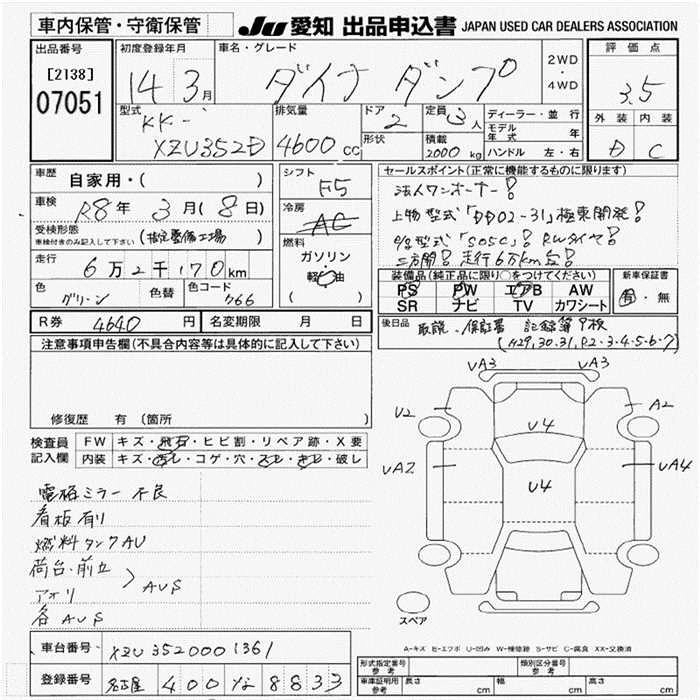 車内保管・守衛保管
JU 愛知 出品申込書 JAPAN USED CAR DEALERS ASSOCIATION
出品番号
[2138]
07051
初度登録年月
14 3月
車名・グレード
ダイナ ダンプ
2WD
・
4WD
評価点
3.5
外装 内装
D C
型式
KK-
XZU352D
排気量
4600 cc
ドア
2
形状
定員
3人
積載
2000 kg
ディーラー・並行
モデル年式 年
ハンドル 左・右
車歴 自家用・( )
車検 R8年 3月(8日)
受検形態
車検付きのみ記入して下さい (指定整備工場)
走行 6万2千170km
色 グリーン 色替 色コード 766
シフト
F5
冷房
AC
燃料
ガソリン
・
軽油
( )
セールスポイント(正常に機能するものに限ります)
法人ワンオーナー!
上物型式「DD02-31」極東開発!
三方開! 走行6万km台!
装備品(純正品に限り○をつけてください)
PS PW エアB AW
SR ナビ TV カワシート
新車保証書
有・無
後日品 取説・保証書 記録簿9枚
(H29,30.31,R2・3・4・5・6・7)
R券 4640円 名変期限 月 日
注意事項申告欄(不具合内容等は具体的に記入して下さい)
修復歴 有(箇所 )
検査員記入欄
FW キズ・飛石・ヒビ割・リペア跡・X要
内装 キズ・汚レ・コゲ・穴・スレ・キレ・破レ
電格ミラー不良
看板有り
燃料タンクAU
荷台・前立
アオリ
> AUS
各AUS
UA3 UA3
U2 A2
U4
UA2 U4 UA4
スペア
A-キズ E-エフポ U-凹み W-補修跡 S-サビ C-腐食 XX-交換済
車台番号 XZU352 0001361
登録番号 名古屋 400 な 8833
形式指定番号
参考
類別区分番号
参考
車庫証明用
参考
長さ cm 幅 cm 高さ cm